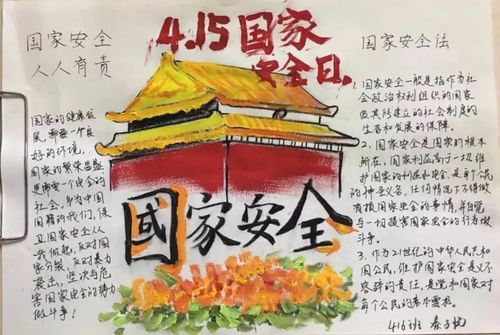 4.15国家
安全日.
国家安全
人人有责
国家的健康发
展,需要一个良
好的环境,
国家的繁荣昌盛
更需要一个安全的
社会,身为中国
国籍的我们,保
卫国家安全从
我做起,反对国
家分裂,反对暴力
袭击,坚决与危
害国家安全的势力
做斗争!
國家安全
国家安全法
1. 国家安全一般是指作为社
会政治权利组织的国家
及其所建立的社会制度的
生存和发展的保障。
2、国家安全是国家的根本
所在,国家利益高于一切,维
护国家的利益和安全,是每个公民
的神圣义务,任何情况下不得做
有损国家安全的事情,并自觉
与一切损害国家安全的行为做
斗争。
3、作为21世纪的中华人民共和
国公民,维护国家安全是义不
容辞的责任,是党和国家对
每个公民的基本要求。
416班